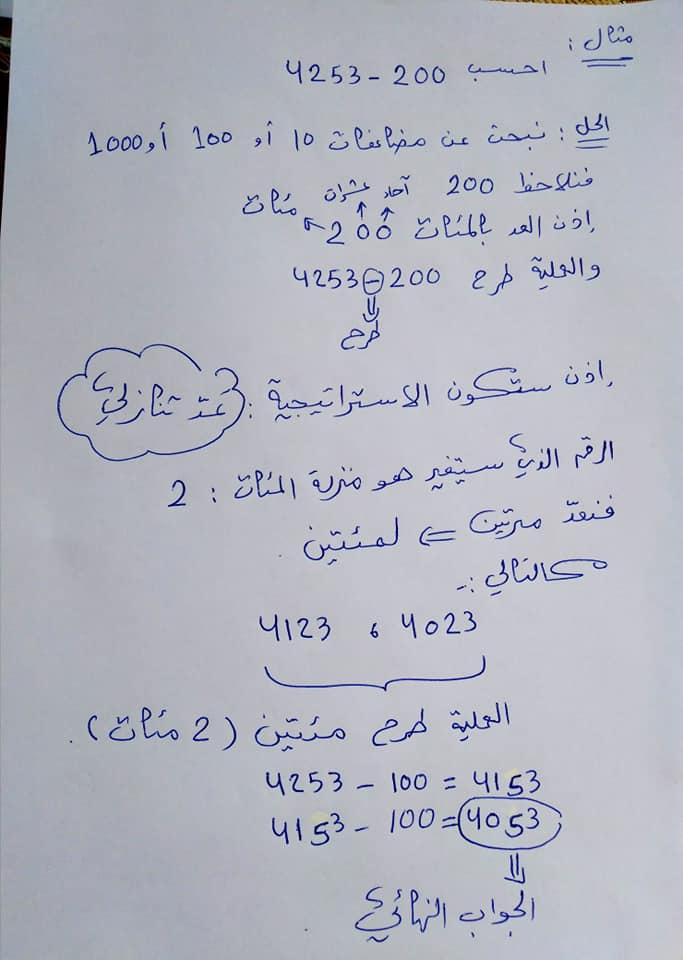 مثال :
احسب 4253 - 200
الحل : نبحث عن مضاعفات 10 أو 100 أو 1000
فنلاحظ 200 آحاد عشرات مئات
إذن العد بالمئات 200
والعملية طرح 4253 - 200
طرح
إذن ستكون الاستراتيجية : عدّ تنازلي
الرقم الذي سيتغير هو منزلة المئات : 2
فنعدّ مرتين ⇐ لمئتين .
كالتالي :-
4123 ، 4023
العملية طرح مئتين (2 مئات) .
4253 - 100 = 4153
4153 - 100 = 4053
الجواب النهائي